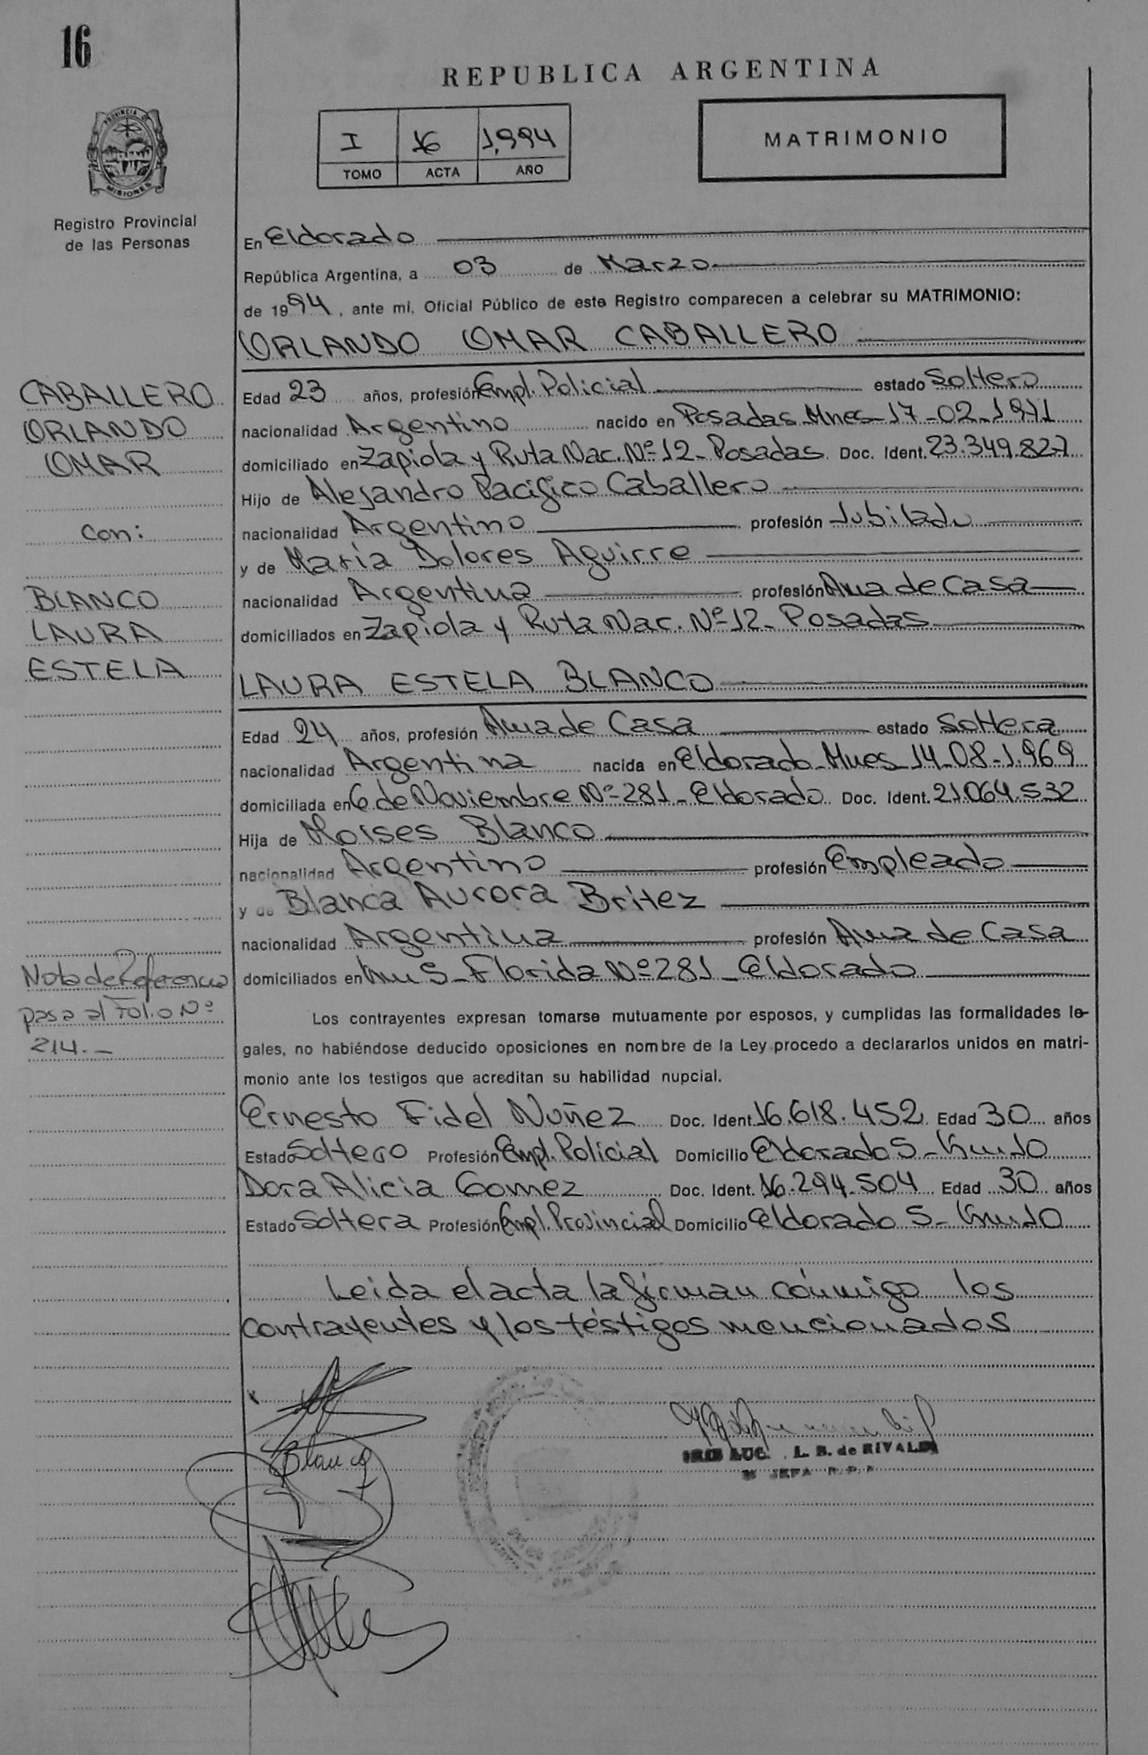 16
REPUBLICA ARGENTINA
I 16 1,994
TOMO ACTA AÑO
MATRIMONIO
PROVINCIA DE
MISIONES
Registro Provincial
de las Personas
En Eldorado
República Argentina, a 03 de Marzo
de 1994, ante mí, Oficial Público de este Registro comparecen a celebrar su MATRIMONIO:
ORLANDO OMAR CABALLERO
CABALLERO
ORLANDO
OMAR
con:
BLANCO
LAURA
ESTELA
Edad 23 años, profesión Empl. Policial estado Soltero
nacionalidad Argentino nacido en Posadas Mnes-17-02-1971
domiciliado en Zapiola y Ruta Nac. Nº 12- Posadas Doc. Ident. 23.349.827
Hijo de Alejandro Pacifico Caballero
nacionalidad Argentino profesión Jubilado
y de María Dolores Aguirre
nacionalidad Argentina profesión Ama de Casa
domiciliados en Zapiola y Ruta Nac. Nº 12- Posadas
LAURA ESTELA BLANCO
Edad 24 años, profesión Ama de Casa estado Soltera
nacionalidad Argentina nacida en Eldorado-Mnes-14-08-1.969
domiciliada en 6 de Noviembre Nº 281-Eldorado Doc. Ident. 21.064.532
Hija de Moises Blanco
nacionalidad Argentino profesión Empleado
y de Blanca Aurora Britez
nacionalidad Argentina profesión Ama de Casa
domiciliados en Km 5- Florida Nº 281 - Eldorado
Nota de Referencia
pasa al Folio Nº
214.-
Los contrayentes expresan tomarse mutuamente por esposos, y cumplidas las formalidades le-
gales, no habiéndose deducido oposiciones en nombre de la Ley procedo a declararlos unidos en matri-
monio ante los testigos que acreditan su habilidad nupcial.
Ernesto Fidel Nuñez Doc. Ident. 16.618.452 Edad 30 años
Estado Soltero Profesión Empl. Policial Domicilio Eldorado
Dora Alicia Gomez Doc. Ident. 16.294.504 Edad 30 años
Estado Soltera Profesión Empl. Provincial Domicilio Eldorado
Leida el acta la firman conmigo los
contrayentes y los testigos mencionados
Blanco
L. B. de RIVALDI
JEFA R.P.P.